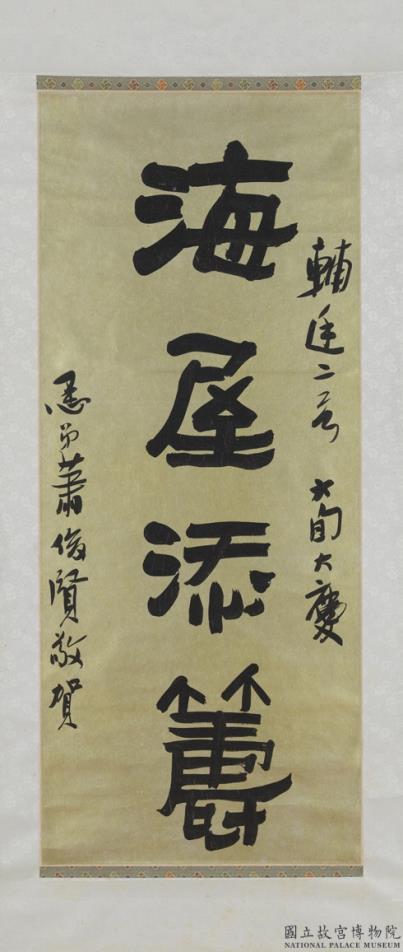 輔廷二哥 六旬大慶
海屋添籌
愚弟蕭俊賢敬賀
國立故宮博物院
NATIONAL PALACE MUSEUM